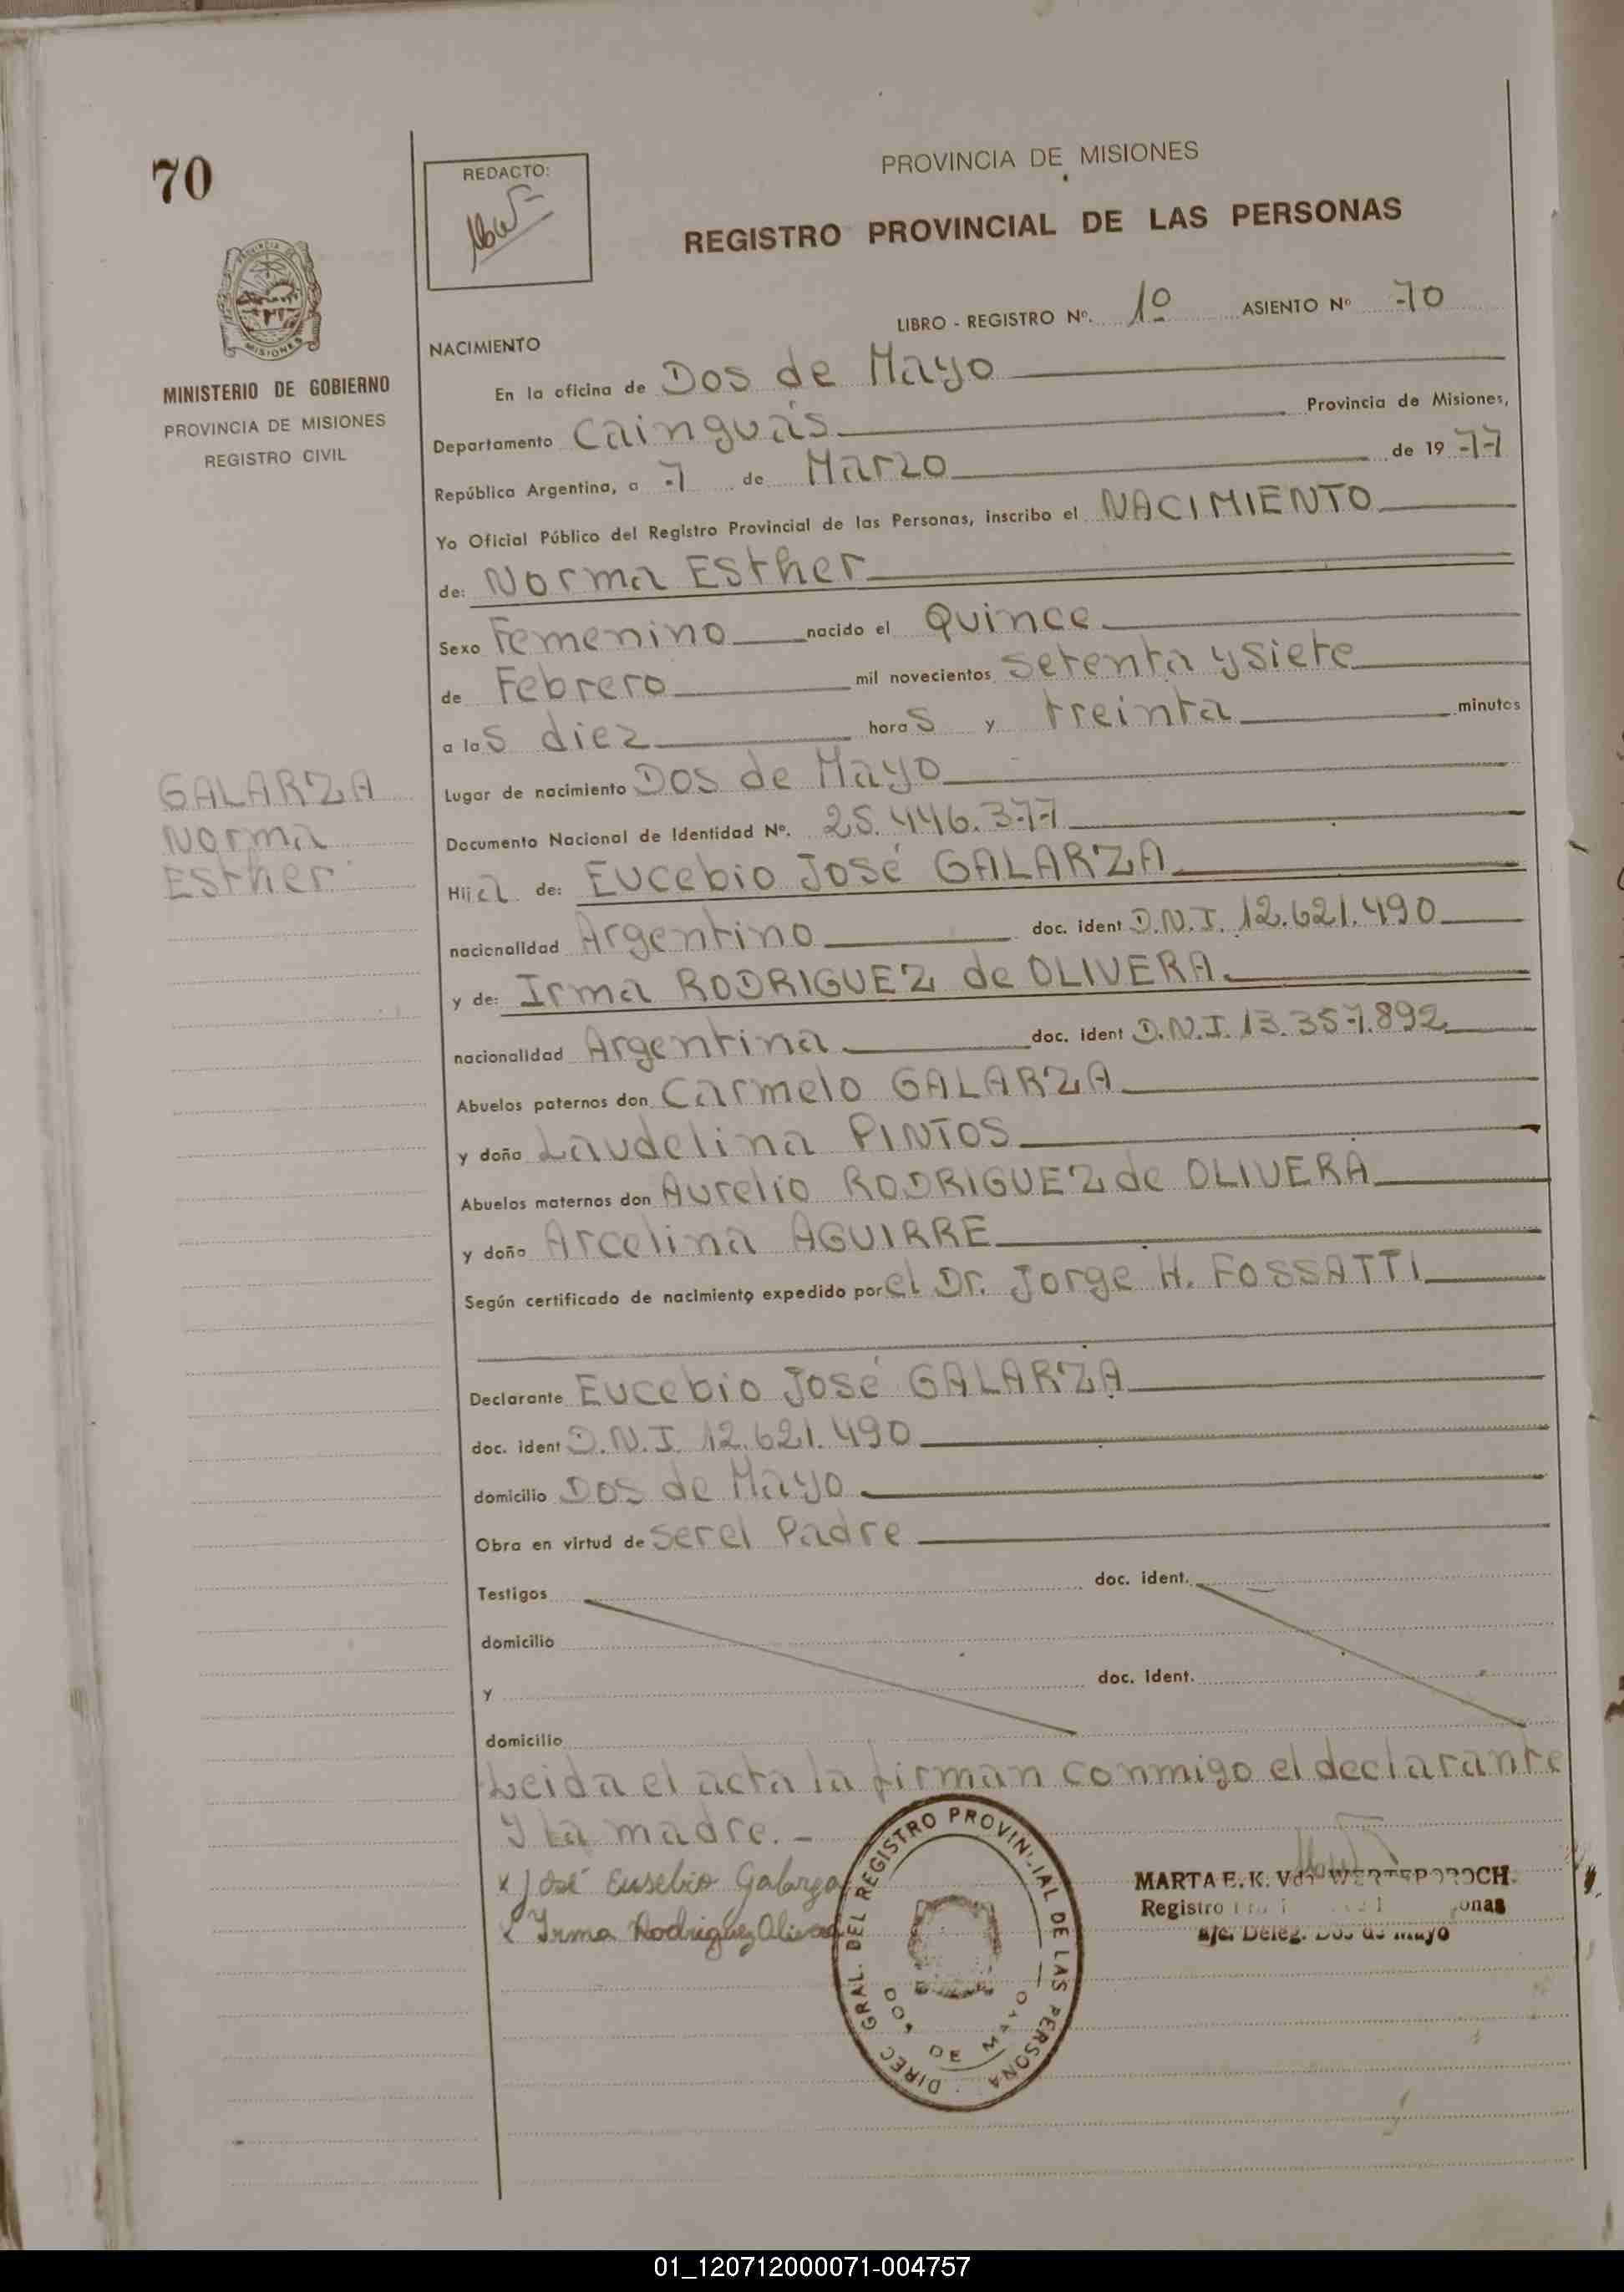 70
REDACTO:
PROVINCIA DE MISIONES
REGISTRO PROVINCIAL DE LAS PERSONAS
LIBRO - REGISTRO Nº. 1º ASIENTO Nº 70
PROVINCIA DE
MISIONES
MINISTERIO DE GOBIERNO
PROVINCIA DE MISIONES
REGISTRO CIVIL
NACIMIENTO
En la oficina de Dos de Mayo
Departamento Cainguás Provincia de Misiones,
República Argentina, a 7 de Marzo de 19 77
Yo Oficial Público del Registro Provincial de las Personas, inscribo el NACIMIENTO
de: Norma Esther
Sexo Femenino nacido el Quince
de Febrero mil novecientos setenta y siete
a las diez horas y treinta minutos
GALARZA
Norma
Esther
Lugar de nacimiento Dos de Mayo
Documento Nacional de Identidad Nº. 25.446.377
Hija de: Eucebio José GALARZA
nacionalidad Argentino doc. ident D.N.I. 12.621.490
y de: Irma RODRIGUEZ de OLIVERA
nacionalidad Argentina doc. ident D.N.I. 13.357.892
Abuelos paternos don Carmelo GALARZA
y doña Laudelina PINTOS
Abuelos maternos don Aurelio RODRIGUEZ de OLIVERA
y doña Arcelina AGUIRRE
Según certificado de nacimiento expedido por el Dr. Jorge H. FOSSATTI
Declarante Eucebio José GALARZA
doc. ident D.N.I. 12.621.490
domicilio Dos de Mayo
Obra en virtud de ser el Padre
Testigos doc. ident.
domicilio
y doc. ident.
domicilio
Leida el acta la firman conmigo el declarante
y la madre. -
x José Eusebio Galarza
x Irma Rodriguez Olivera
DIREC GRAL. DEL REGISTRO PROVINCIAL DE LAS PERSONA
DOS DE MAYO
MARTA E. K. Vda
Registro
a/c. Deleg. Dos de Mayo
01_120712000071-004757